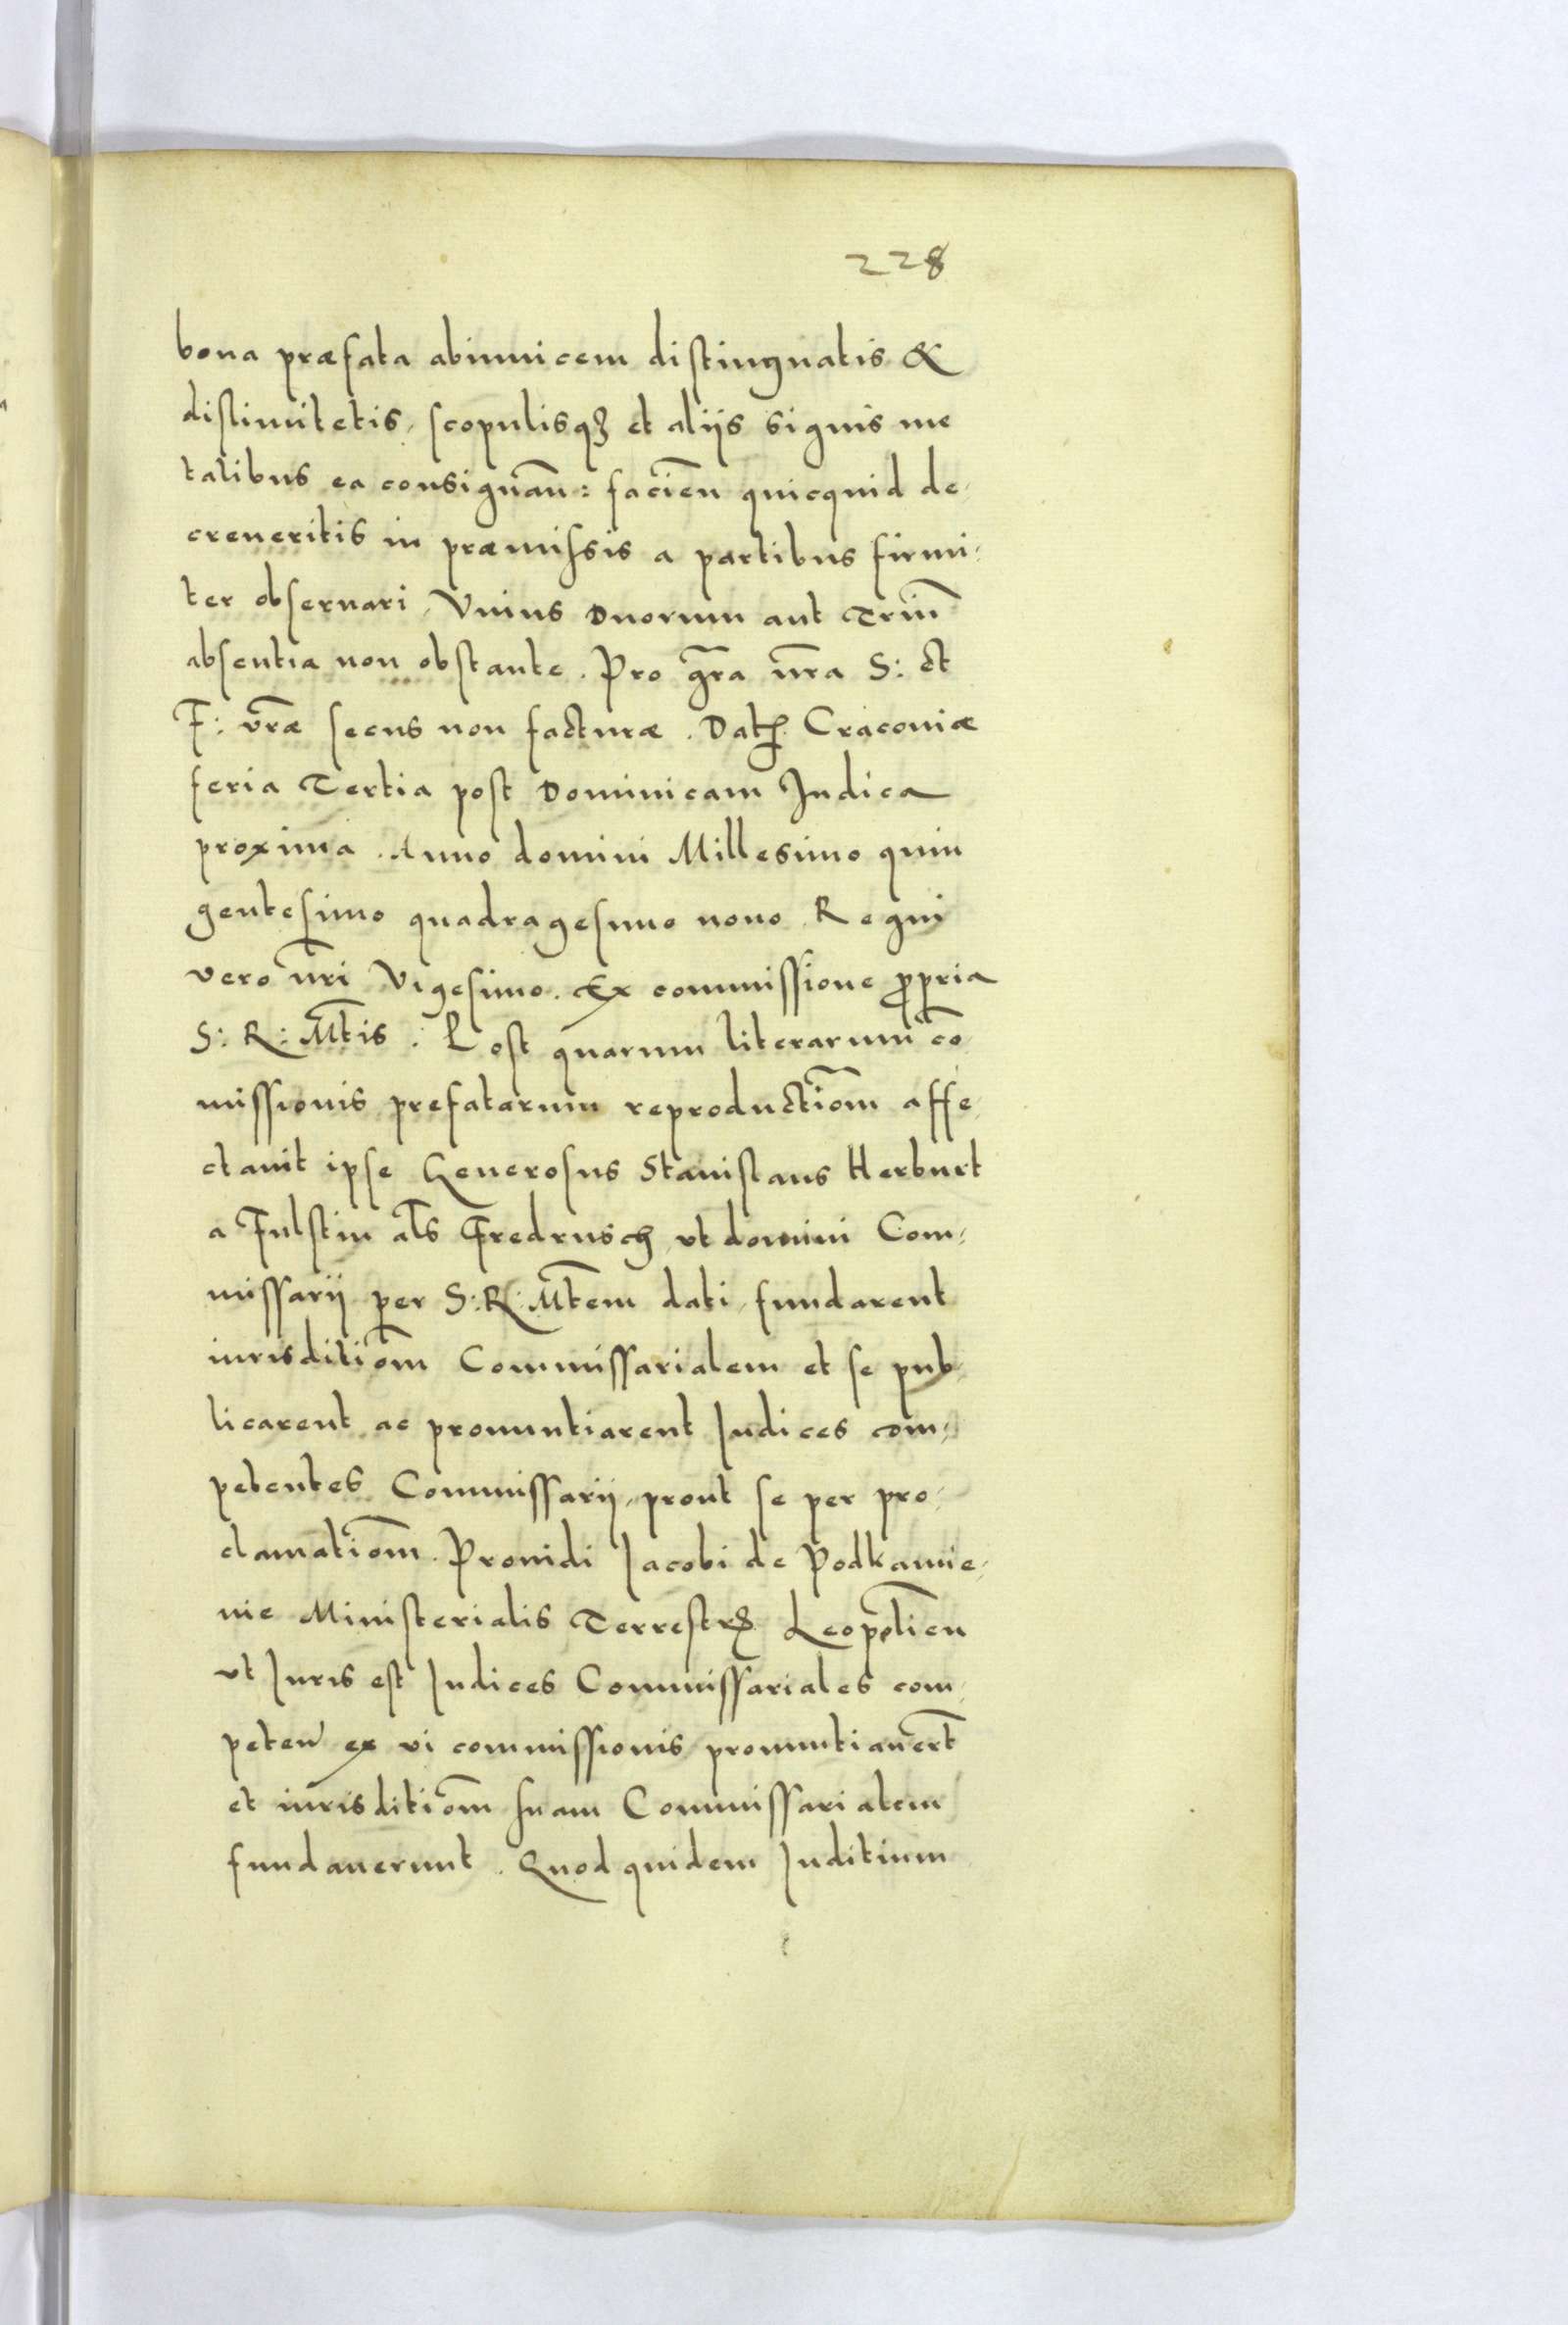 228
bona præfata abinuicem distinguatis &
distimitetis, scopulisqꝫ et alijs signis me
talibus ea consignan̄: facien̄ quicquid de,
creueritis in præmissis a partibus firmi,
ter obseruari, Vnius Duorum aut Triū
absentia non obstante. Pro gr̄a nr̄a S: et
F: vr̄æ secus non facturæ. Datꝭ Cracouiæ
feria Tertia post Dominicam Judica
proxima. Anno domini Millesimo quin
gentesimo quadragesimo nono. Regni
vero nr̄i Vigesimo. Ex commissione p̄pria
S: R: Mt̄is. Post quarum literarum cō
missionis prefatarum reproductiōm affe,
ctauit ipse Generosus Stanislaus Herburt
a Fulstin al̄s Fredrusch, vt domini Com,
missarij per S: R: Mt̄em dati, fundarent
iurisditiōm Commissarialem et se pub,
licarent ac pronuntiarent Judices com,
petentes Commissarij, prout se per pro,
clamatiōm. Prouidi Jacobi de Podkamie,
nie Ministerialis Terrestrꝭ Leopolīen
vt Juris est Judices Commissariales com,
peten̄ ex vi commissionis pronuntiauer̄t
et iurisditiōm suam Commissarialem
fundauerunt. Quod quidem Juditium